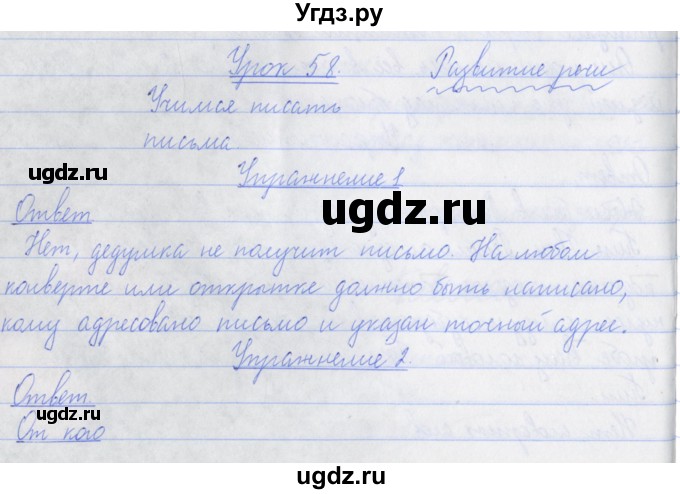 Угдз.ру
Урок 58. Развитие речи
Учимся писать
письма.
ugdz.ru
Упражнение 1
ugdz.ru
ugdz.ru
Ответ
Нет, дедушка не получит письмо. На любом
конверте или открытке должно быть написано,
кому адресовано письмо и указан точный адрес.
Упражнение 2.
ugdz.ru
ugdz.ru
Ответ.
От кого
ugdz.ru